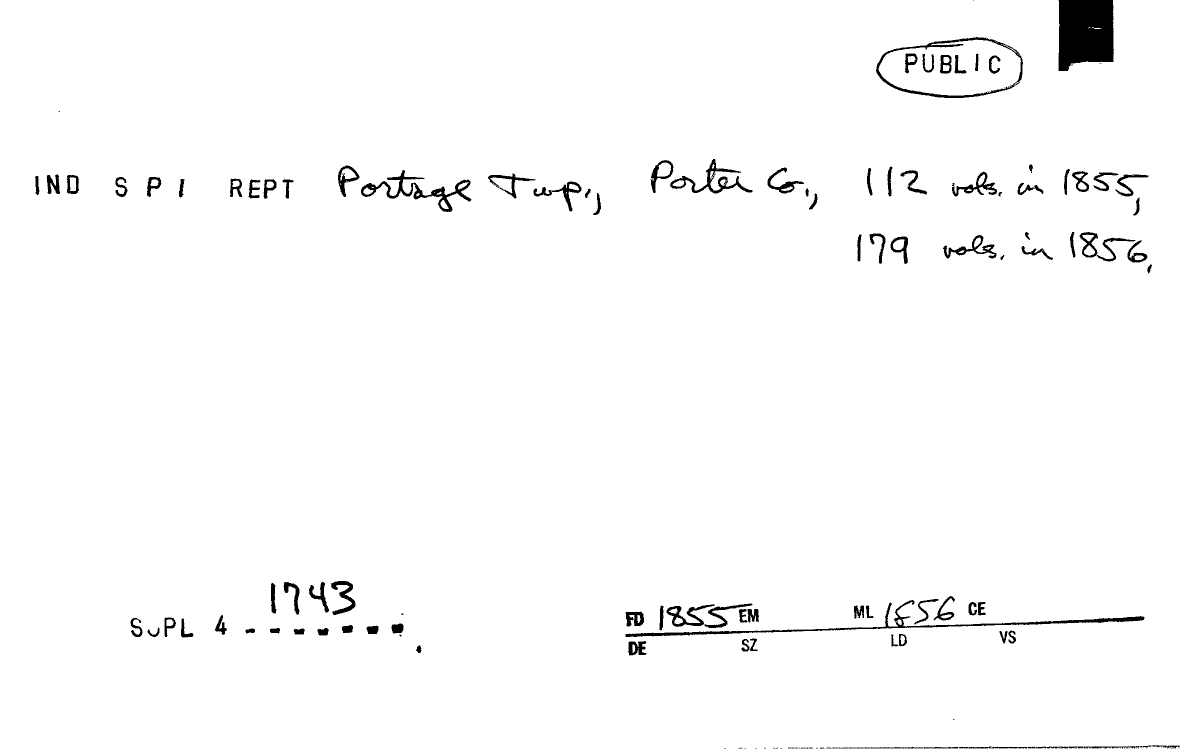 PUBLIC
IND S P I REPT Portage Twp., Porter Co., 112 vols. in 1855,
179 vols. in 1856.
1743
SUPL 4 - - - - - - - .
FD 1855 EM ML 1856 CE
DE SZ LD VS